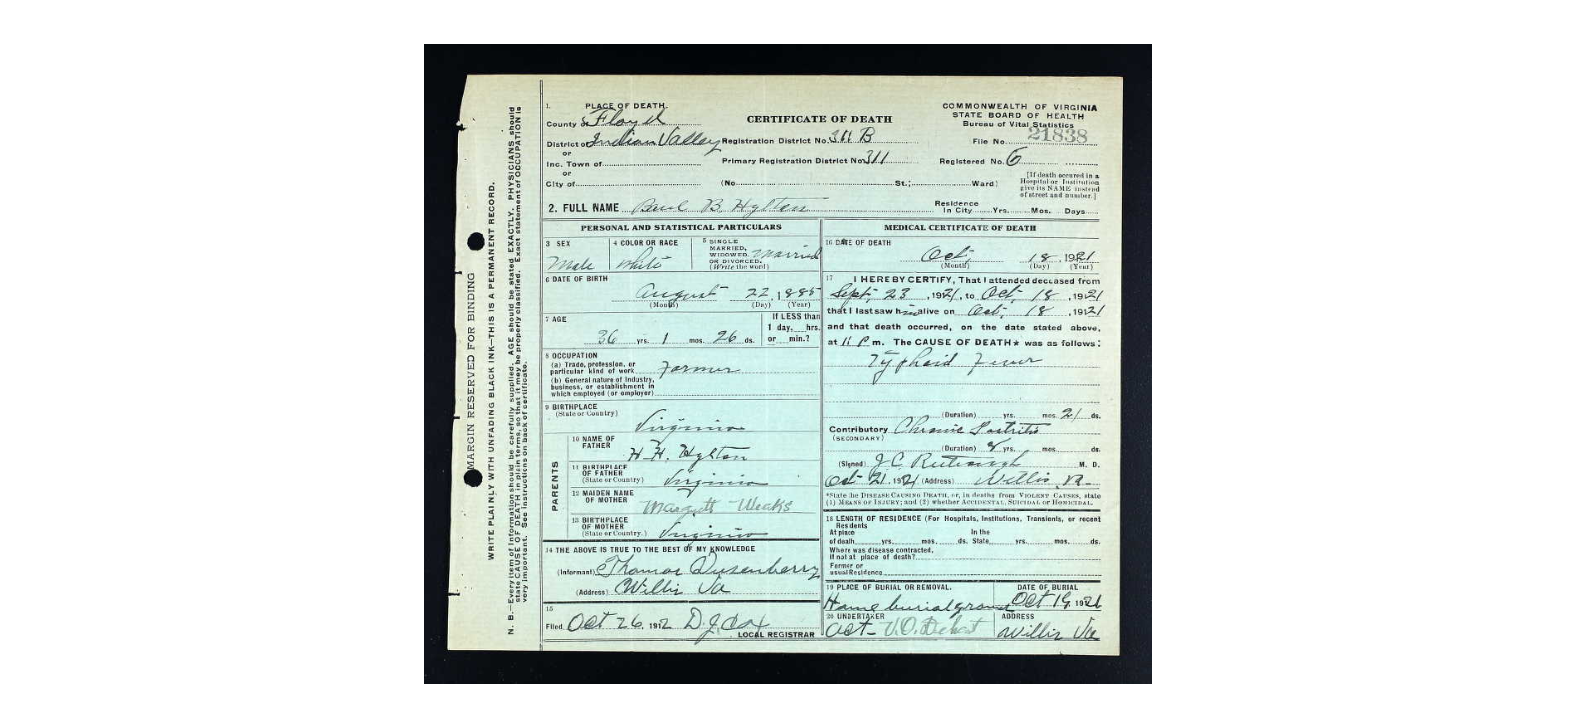 MARGIN RESERVED FOR BINDING
WRITE PLAINLY WITH UNFADING BLACK INK—THIS IS A PERMANENT RECORD.
N. B.—Every item of information should be carefully supplied. AGE should be stated EXACTLY. PHYSICIANS should
state CAUSE OF DEATH in plain terms, so that it may be properly classified. Exact statement of OCCUPATION is
very important. See instructions on back of certificate.
1. PLACE OF DEATH.
County of Floyd
District of Indian Valley
or
Inc. Town of
or
City of
CERTIFICATE OF DEATH
Registration District No. 311 B
Primary Registration District No. 311
(No. St.; Ward)
COMMONWEALTH OF VIRGINIA
STATE BOARD OF HEALTH
Bureau of Vital Statistics
21838
File No.
Registered No. 6
[If death occured in a
Hospital or Institution
give its NAME instead
of street and number.]
2. FULL NAME B. Hylton
Residence
In City Yrs. Mos. Days
PERSONAL AND STATISTICAL PARTICULARS
3 SEX
Male
4 COLOR OR RACE
White
5 SINGLE
MARRIED,
WIDOWED
OR DIVORCED.
(Write the word)
Married
6 DATE OF BIRTH
August 22, 1885
(Month) (Day) (Year)
7 AGE
36 yrs. 1 mos. 26 ds.
If LESS than
1 day, hrs.
or min.?
8 OCCUPATION
(a) Trade, profession, or
particular kind of work Farmer
(b) General nature of industry,
business, or establishment in
which employed (or employer)
9 BIRTHPLACE
(State or Country)
Virginia
PARENTS
10 NAME OF
FATHER
H. H. Hylton
11 BIRTHPLACE
OF FATHER
(State or Country)
Virginia
12 MAIDEN NAME
OF MOTHER
Weaks
13 BIRTHPLACE
OF MOTHER
(State or Country.)
Virginia
14 THE ABOVE IS TRUE TO THE BEST OF MY KNOWLEDGE
(Informant) Thomas Dusenberry
(Address) Willis Va
15
Filed Oct 26, 1912 D. J. Cox
LOCAL REGISTRAR
MEDICAL CERTIFICATE OF DEATH
16 DATE OF DEATH
Oct, 18, 1921
(Month) (Day) (Year)
17 I HEREBY CERTIFY, That I attended deceased from
Sept, 23, 1921, to Oct, 18, 1921
that I last saw him alive on Oct, 18, 1921
and that death occurred, on the date stated above,
at 11 P m. The CAUSE OF DEATH* was as follows:
Typhoid Fever
(Duration) yrs. mos. 21 ds.
Contributory Chronic
(SECONDARY)
(Duration) yrs. mos. ds.
(Signed) J. C. M. D.
Oct 21, 1921 (Address) Willis, Va.
*State the DISEASE CAUSING DEATH, or, in deaths from VIOLENT CAUSES, state
(1) MEANS OF INJURY; and (2) whether ACCIDENTAL, SUICIDAL or HOMICIDAL.
18 LENGTH OF RESIDENCE (For Hospitals, Institutions, Transients, or recent
Residents
At place In the
of death yrs. mos. ds. State yrs. mos. ds.
Where was disease contracted,
If not at place of death?
Former or
usual Residence
19 PLACE OF BURIAL OR REMOVAL.
Home burial ground
DATE OF BURIAL
Oct 19, 1921
20 UNDERTAKER
ADDRESS
Willis Va